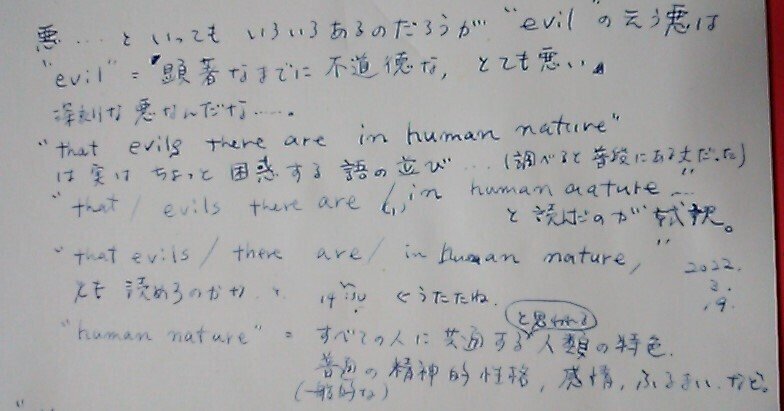 悪……といっても いろいろあるのだろうが "evil"の云う悪は
"evil" = 「顕著なまでに 不道徳な, とても悪い」
深刻な悪なんだな……。
"that evils there are in human nature"
は実は ちょっと 困惑する 語の並び … (調べると 普段にある文だった)
"that / evils there are (,) in human nature…"
と読んだのが 試訳。
"that evils / there are / in human nature,"
とも 読めるのかな、と 2022.
3.
19.
14:30 ぐうたたね.
"human nature" = すべての人に共通すると思われる人類の特色.
普通の精神的性格, 感情, ふるまい、など。
(一般的な)